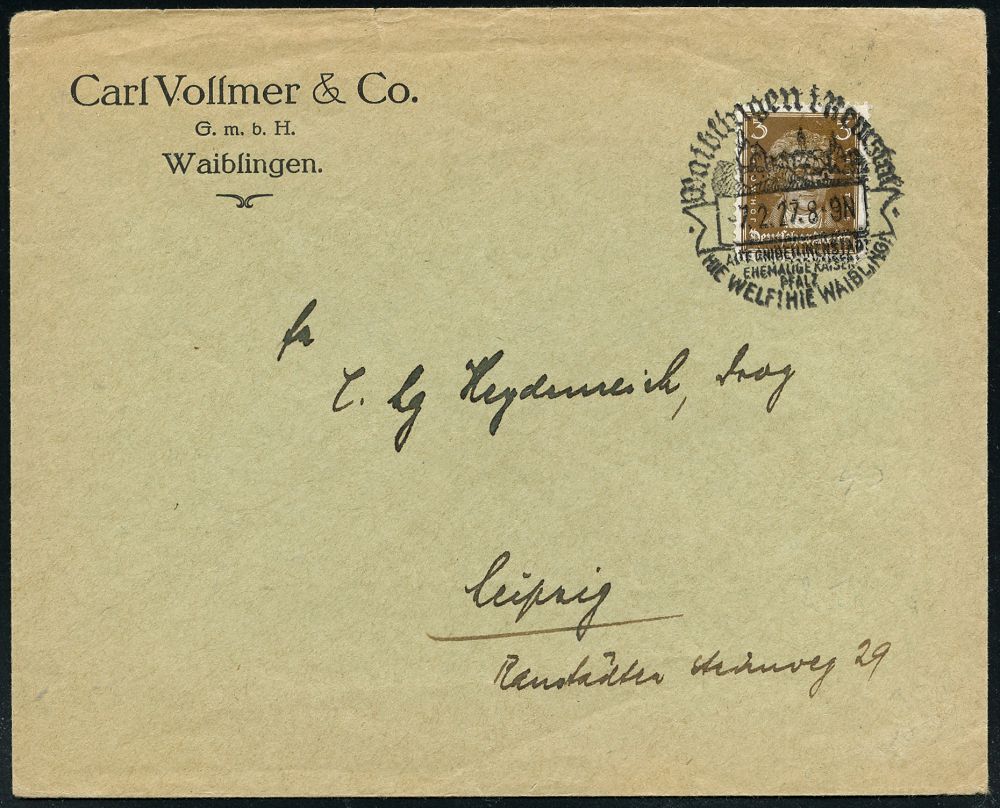 Carl Vollmer & Co.
G. m. b. H.
Waiblingen.
3 3
Waiblingen (Remstal)
7.2.27.8-9N
ALTE GHIBELLINENSTADT
EHEMALIGE KAISER-
PFALZ
HIE WELF! HIE WAIBLING!
Deutsches Reich
Heydenreich, Drog
Leipzig
Ranstädter Steinweg 29